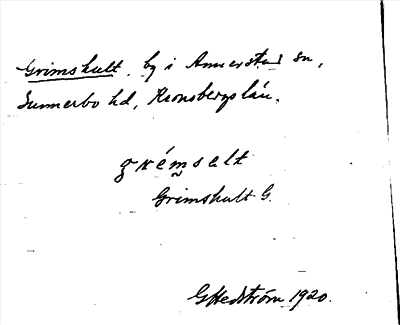 Grimshult, by i Annerstad sn,
Sunnerbo hd, Kronobergs län.
grémselt
Grimshult G.
G Hedström 1920.